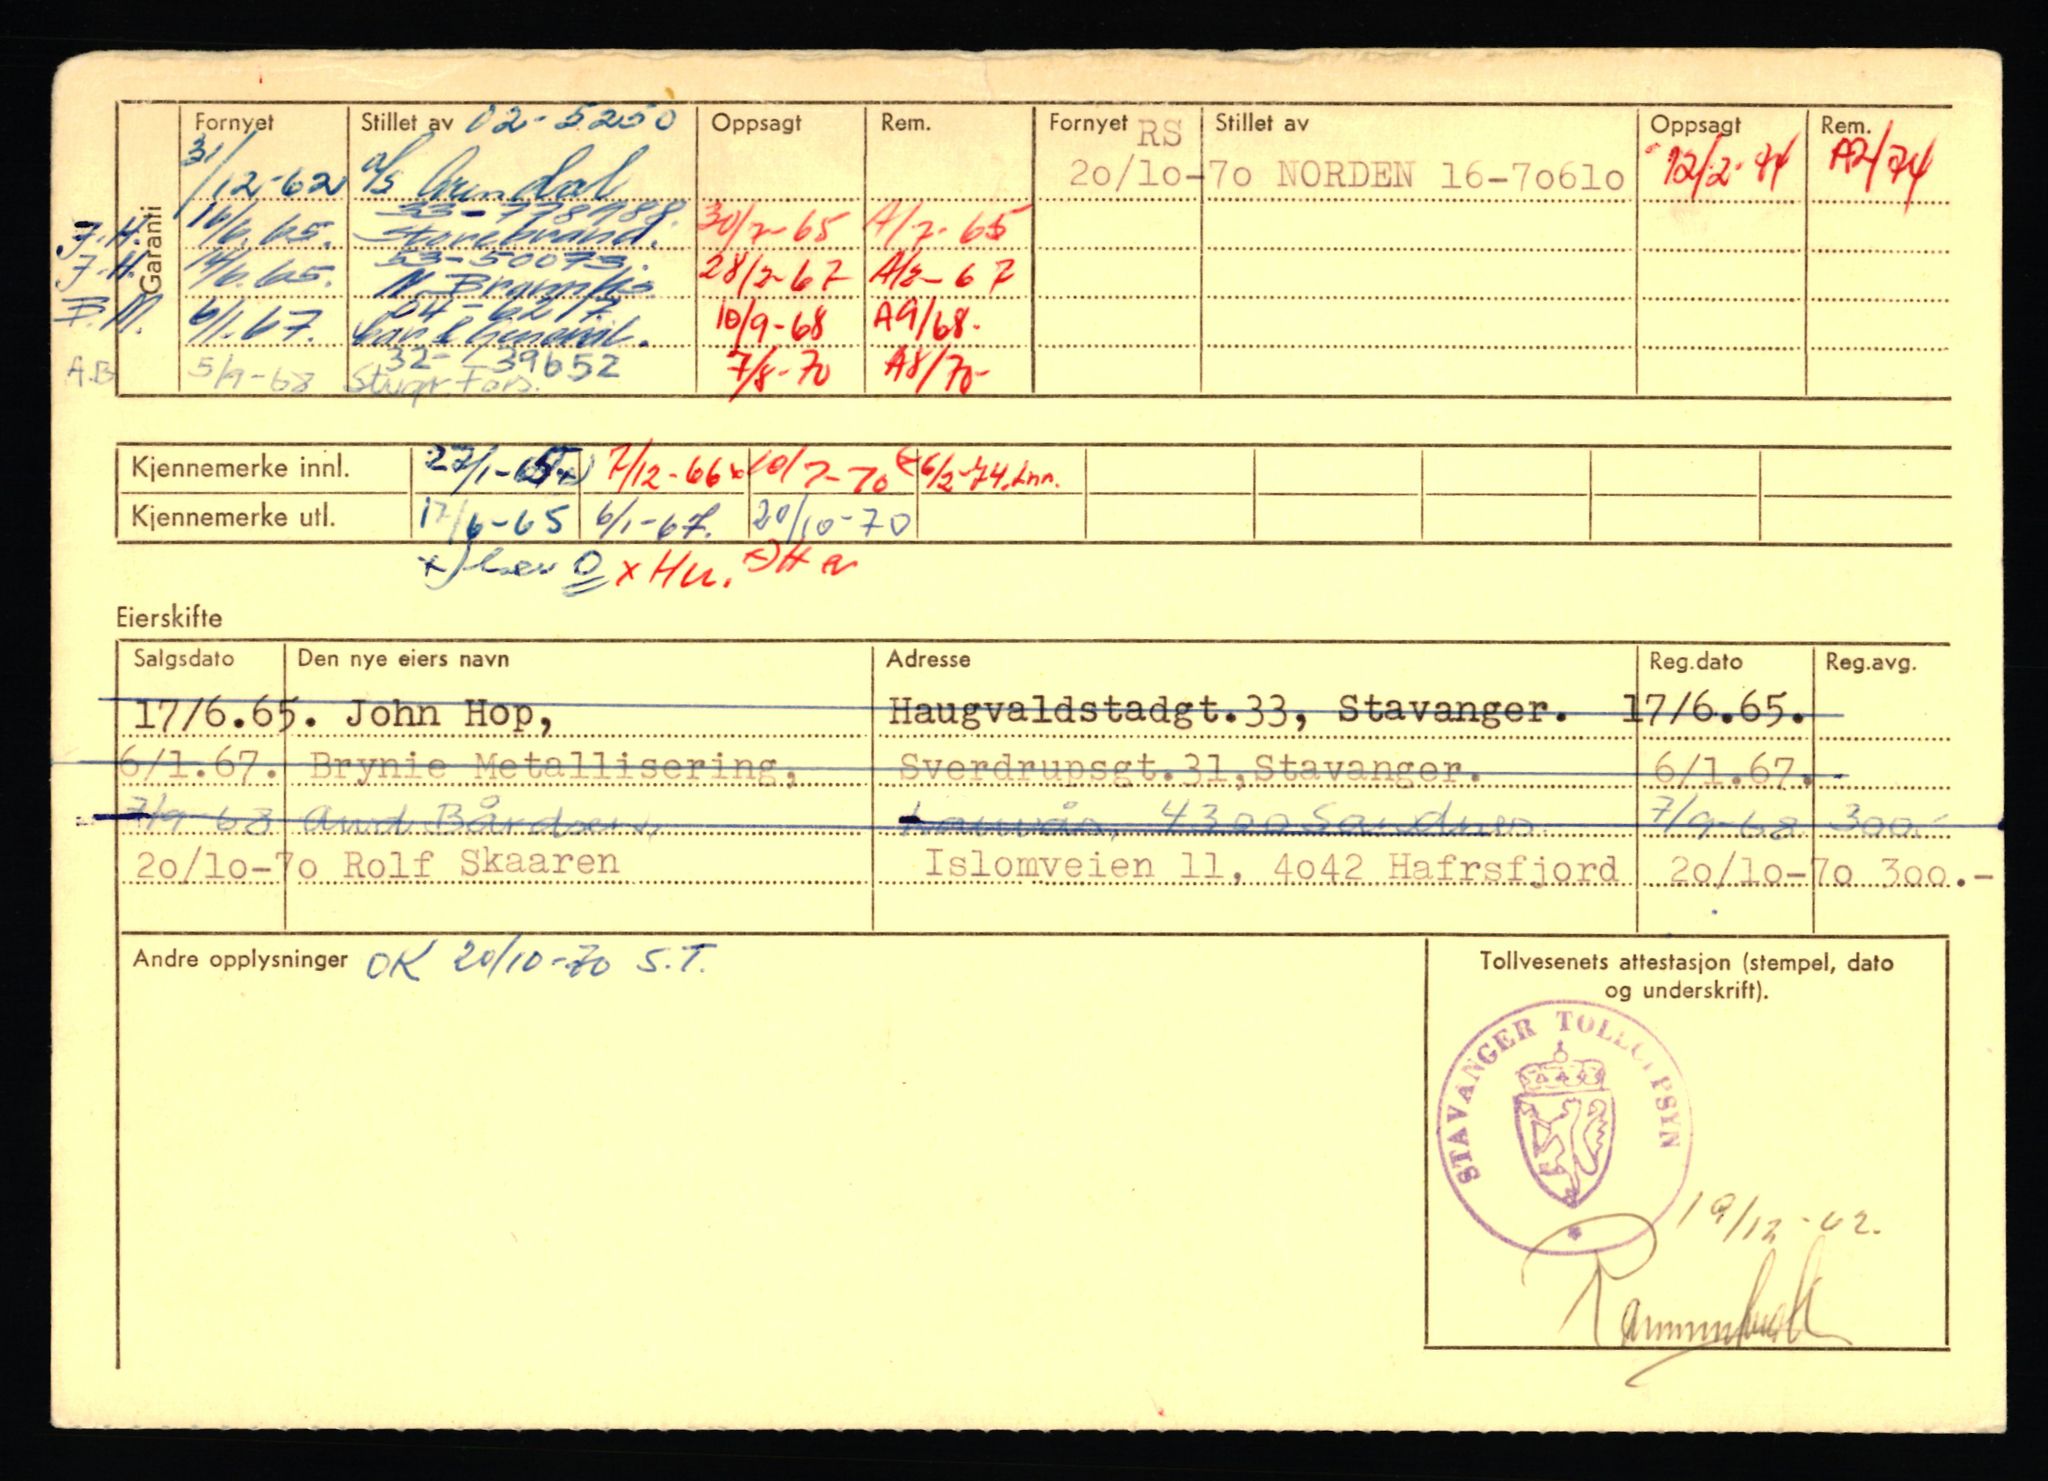 Garanti
Fornyet Stillet av 02-5250 Oppsagt Rem. Fornyet RS Stillet av Oppsagt Rem.
31/12-62 a/s Arendal 20/10-70 NORDEN 16-70610 12/2-74 A2/74
J.H. 16/6.65. Storebrand. 30/7-65 A/7-65
53-50073.
J.H. 14/6.65. 28/2-67 A/2-67
04-6217
B.M. 6/1.67. 10/9-68 A9/68.
32-39652
A.B 5/9-68 7/8-70 A8/70-
Kjennemerke innl. 27/1-65 7/12-66 x 10/7-70 6/2-74. Inn.
Kjennemerke utl. 17/6-65 6/1-67. 20/10-70
x Hu.
Eierskifte
Salgsdato Den nye eiers navn Adresse Reg.dato Reg.avg.
17/6.65. John Hop, Haugvaldstadgt.33, Stavanger. 17/6.65.
6/1.67. Brynie Metallisering, Sverdrupsgt.31,Stavanger. 6/1.67.
7/9-68 Aud Bårdsen, 4300 Sandnes 7/9-68 300.-
20/10-70 Rolf Skaaren Islomveien 11, 4042 Hafrsfjord 20/10-70 300.-
Andre opplysninger OK 20/10-70 S.T.
Tollvesenets attestasjon (stempel, dato
og underskrift).
STAVANGER TOLLOPPSYN
19/12-62.